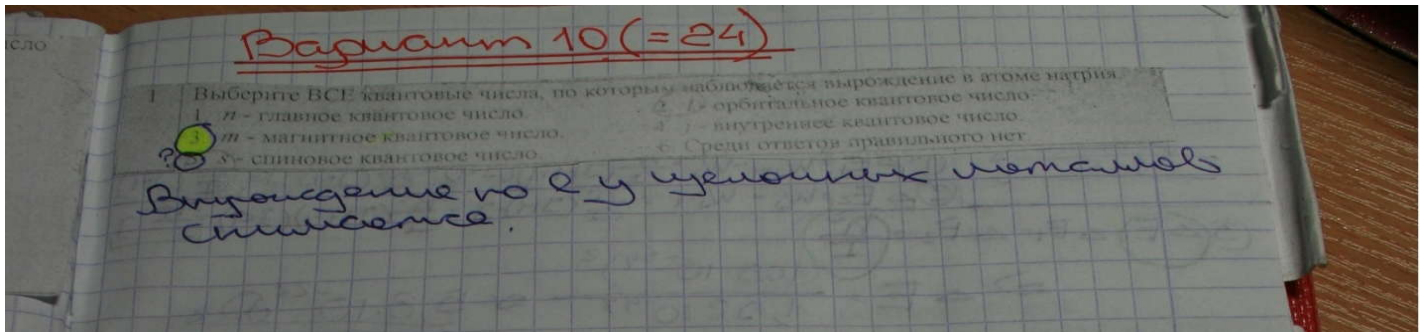 сло
Вариант 10 (=24)
1 Выберите ВСЕ квантовые числа, по которым наблюдается вырождение в атоме натрия.
1. n - главное квантовое число. 2. l - орбитальное квантовое число.
3. m - магнитное квантовое число. 4. j - внутреннее квантовое число.
? 5. s - спиновое квантовое число. 6. Среди ответов правильного нет
Вырождение по l у щелочных металлов
снимается.